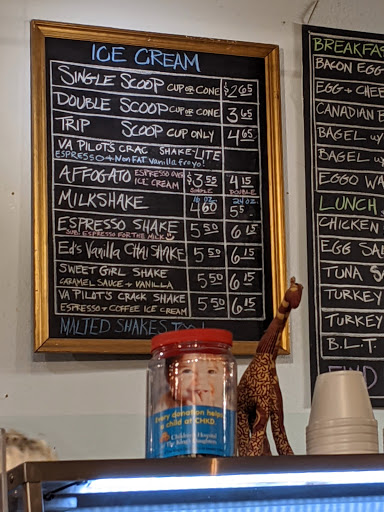 ICE CREAM
SINGLE SCOOP CUP OR CONE $2.65
DOUBLE SCOOP CUP OR CONE 3.65
TRIP SCOOP CUP ONLY 4.65
VA PILOT'S CRAC SHAKE-LITE
ESPRESSO + NonFAT Vanilla froyo!
AFFOGATO ESPRESSO OVER ICE CREAM $3.55 SINGLE 4.15 DOUBLE
16 OZ 24 OZ
MILKSHAKE 4.60 5.5
ESPRESSO SHAKE 5.50 6.15
SUB: ESPRESSO FOR THE MILK
Ed's Vanilla CHAI SHAKE 5.50 6.15
SWEET GIRL SHAKE 5.50 6.15
CARAMEL SAUCE + VANILLA
VA PILOT'S CRACK SHAKE 5.50 6.15
ESPRESSO + COFFEE ICE CREAM
MALTED SHAKES
BREAKFAS
BACON EGG
EGG + CHEE
CANADIAN B
BAGEL w/
BAGEL w/
EGGO WA
LUNCH
CHICKEN
EGG SAL
TUNA S
TURKEY
TURKEY
B.L.T.
Every donation helps
a child at CHKD
Children's Hospital
of The King's Daughters